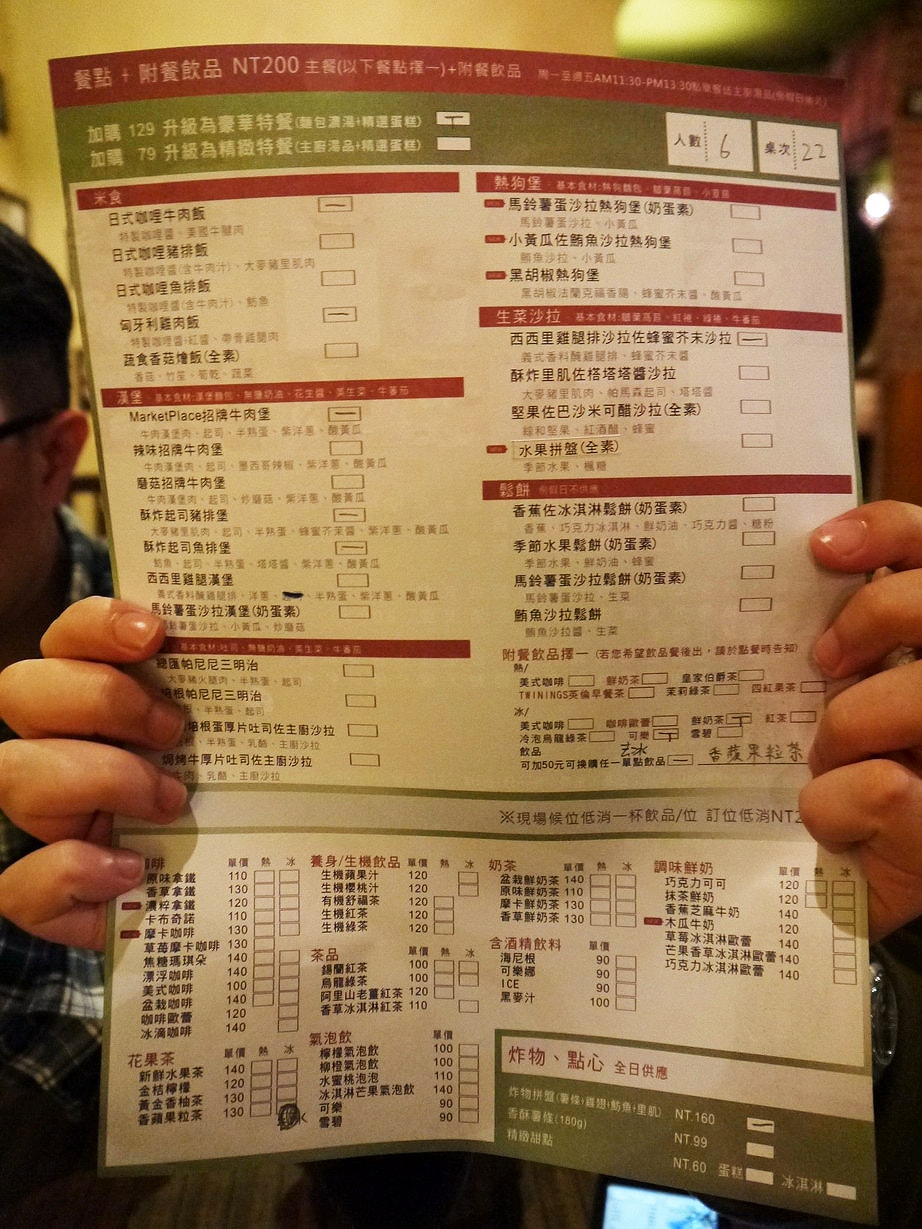 餐點 + 附餐飲品 NT200 主餐(以下餐點擇一)+附餐飲品
加購 129 升級為豪華特餐(麵包濃湯+精選蛋糕)
加購 79 升級為精緻特餐(主廚湯品+精選蛋糕)
人數 6 桌次 22
米食
日式咖哩牛肉飯
特製咖哩醬、美國牛腱肉
日式咖哩豬排飯
特製咖哩醬(含牛肉汁)、大麥豬里肌肉
日式咖哩魚排飯
特製咖哩醬(含牛肉汁)、魴魚
匈牙利雞肉飯
特製咖哩醬+紅醬、帶骨雞腿肉
蔬食香菇燴飯(全素)
香菇、竹笙、筍乾、蔬菜
漢堡 基本食材:漢堡麵包、無鹽奶油、花生醬、美生菜、牛番茄
MarketPlace招牌牛肉堡
牛肉漢堡肉、起司、半熟蛋、紫洋蔥、酸黃瓜
辣味招牌牛肉堡
牛肉漢堡肉、起司、墨西哥辣椒、紫洋蔥、酸黃瓜
磨菇招牌牛肉堡
牛肉漢堡肉、起司、炒磨菇、紫洋蔥、酸黃瓜
酥炸起司豬排堡
大麥豬里肌肉、起司、半熟蛋、蜂蜜芥末醬、紫洋蔥、酸黃瓜
酥炸起司魚排堡
魴魚、起司、半熟蛋、塔塔醬、紫洋蔥、酸黃瓜
西西里雞腿漢堡
義式香料醃雞腿排、洋蔥、半熟蛋、紫洋蔥、酸黃瓜
馬鈴薯蛋沙拉漢堡(奶蛋素)
馬鈴薯蛋沙拉、小黃瓜、炒磨菇
基本食材:吐司、無鹽奶油、美生菜、牛番茄
總匯帕尼尼三明治
大麥豬火腿肉、半熟蛋、起司
培根帕尼尼三明治
、半熟蛋、起司
培根蛋厚片吐司佐主廚沙拉
、半熟蛋、乳酪、主廚沙拉
焗烤牛厚片吐司佐主廚沙拉
牛肉、乳酪、主廚沙拉
熱狗堡 基本食材:熱狗麵包、蘿蔓萵苣、小豆苗
馬鈴薯蛋沙拉熱狗堡(奶蛋素)
馬鈴薯蛋沙拉、小黃瓜
小黃瓜佐鮪魚沙拉熱狗堡
鮪魚沙拉、小黃瓜
黑胡椒熱狗堡
黑胡椒法蘭克福香腸、蜂蜜芥末醬、酸黃瓜
生菜沙拉 基本食材:蘿蔓萵苣、紅捲、綠捲、牛番茄
西西里雞腿排沙拉佐蜂蜜芥末沙拉
義式香料醃雞腿排、蜂蜜芥末醬
酥炸里肌佐塔塔醬沙拉
大麥豬里肌肉、帕馬森起司、塔塔醬
堅果佐巴沙米可醋沙拉(全素)
綜和堅果、紅酒醋、蜂蜜
水果拼盤(全素)
季節水果、楓糖
鬆餅 例假日不供應
香蕉佐冰淇淋鬆餅(奶蛋素)
香蕉、巧克力冰淇淋、鮮奶油、巧克力醬、糖粉
季節水果鬆餅(奶蛋素)
季節水果、鮮奶油、蜂蜜
馬鈴薯蛋沙拉鬆餅(奶蛋素)
馬鈴薯蛋沙拉、生菜
鮪魚沙拉鬆餅
鮪魚沙拉醬、生菜
附餐飲品擇一 (若您希望飲品餐後出，請於點餐時告知)
熱/
美式咖啡 鮮奶茶 皇家伯爵茶
TWININGS英倫早餐茶 茉莉綠茶 四紅果茶
冰/
美式咖啡 咖啡歐蕾 鮮奶茶 紅茶
冷泡烏龍綠茶 可樂 雪碧
飲品
可加50元可換購任一單點飲品 香蘋果粒茶
※現場候位低消一杯飲品/位 訂位低消NT2
咖啡 單價 熱 冰
原味拿鐵 110
香草拿鐵 130
濃粹拿鐵 120
卡布奇諾 110
摩卡咖啡 130
草莓摩卡咖啡 130
焦糖瑪琪朵 140
漂浮咖啡 140
美式咖啡 100
盆栽咖啡 140
咖啡歐蕾 120
冰滴咖啡 140
花果茶 單價 熱 冰
新鮮水果茶 140
金桔檸檬 120
黃金香柚茶 130
香蘋果粒茶 130
養身/生機飲品 單價 熱 冰
生機蘋果汁 120
生機櫻桃汁 120
有機舒福茶 120
生機紅茶 120
生機綠茶 120
茶品 單價 熱 冰
錫蘭紅茶 100
烏龍綠茶 100
阿里山老薑紅茶 120
香草冰淇淋紅茶 110
氣泡飲 單價
檸檬氣泡飲 100
柳橙氣泡飲 100
水蜜桃泡泡 110
冰淇淋芒果氣泡飲 140
可樂 90
雪碧 90
奶茶 單價 熱 冰
盆栽鮮奶茶 140
原味鮮奶茶 110
摩卡鮮奶茶 130
香草鮮奶茶 130
含酒精飲料 單價
海尼根 90
可樂娜 90
ICE 90
黑麥汁 100
調味鮮奶 單價 熱 冰
巧克力可可 120
抹茶鮮奶 120
香蕉芝麻牛奶 140
木瓜牛奶 120
草莓冰淇淋歐蕾 140
芒果香草冰淇淋歐蕾 140
巧克力冰淇淋歐蕾 140
炸物、點心 全日供應
炸物拼盤(薯條+雞翅+魴魚+里肌) NT.160
香酥薯條(180g) NT.99
精緻甜點 NT.60 蛋糕 冰淇淋